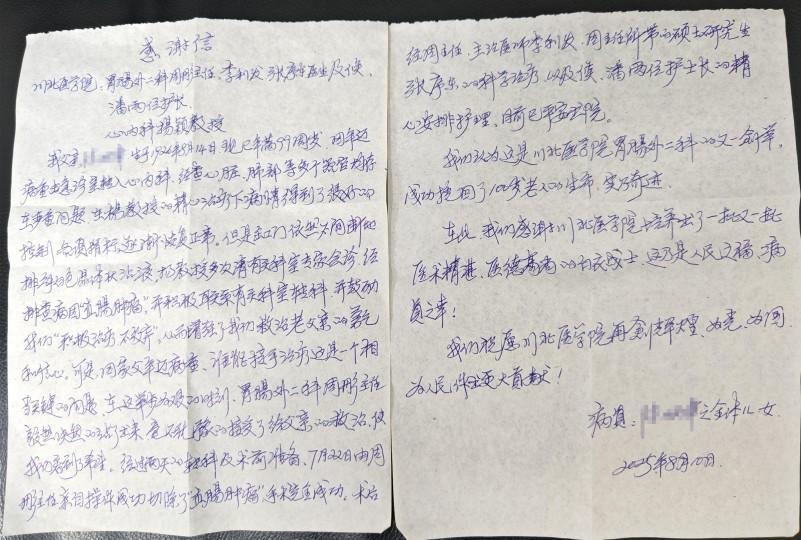 感谢信
川北医学院，胃肠外二科周彤主任、李利发、张序东医生及侯、
潘两位护长、
心内科杨颖教授
我父亲 生于1926年8月14日 现已年满99周岁 因年迈
病重由急诊室转入心内科，经查心脏、肺部等多个器官均存
在严重问题，在杨教授的精心治疗下病情得到了很好的
控制 各项指标逐渐恢复正常。但是肛门依然不间断地
排 色晶体状浓液，杨教授多次请有关科室专家会诊，经
排查病因"直肠肿瘤"，并积极联系有关科室转科，并鼓励
我们"积极治疗 不放弃"，从而增强了我们救治老父亲的勇气
和信心。可是，因家父年迈病重、谁能接手治疗这是一个相
当关键的问题，在这 的时刻，胃肠外二科周彤主任
毅然决然的站了出来，义无反顾的接受了给父亲的救治，使
我们看到了希望。经过两天的转科及术前准备，7月22日由周
彤主任亲自操作成功切除了"直肠肿瘤"手术完全成功。术后
经周主任、主治医师李利发、周主任所带的硕士研究生
张序东的科学治疗，以及侯、潘两位护士长的精
心安排护理，目前已平安出院。
我们认为这是川北医学院胃肠外二科的又一创举，
成功挽回了100岁老人的生命，实乃奇迹。
在此，我们感谢川北医学院培养出了一批又一批
医术精湛、医德高尚的白衣战士，这乃是人民之福，病
员之幸！
我们祝愿川北医学院再创辉煌，为党、为国
为人民作出更大贡献！
病员： 之全体儿女
2025年8月10日.